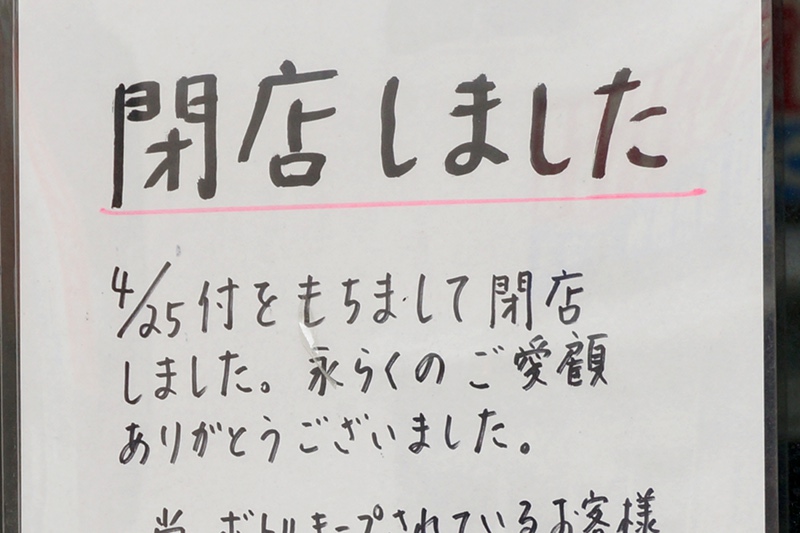 閉店しました
4/25付をもちまして閉店
しました。永らくのご愛顧
ありがとうございました。
ボトルキープされているお客様